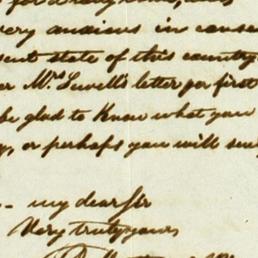 very anxious in conse
sent state of this country
or Mrs Lowell's letter per first
be glad to know what you
or perhaps you will
my dear Sir
Very truly yours